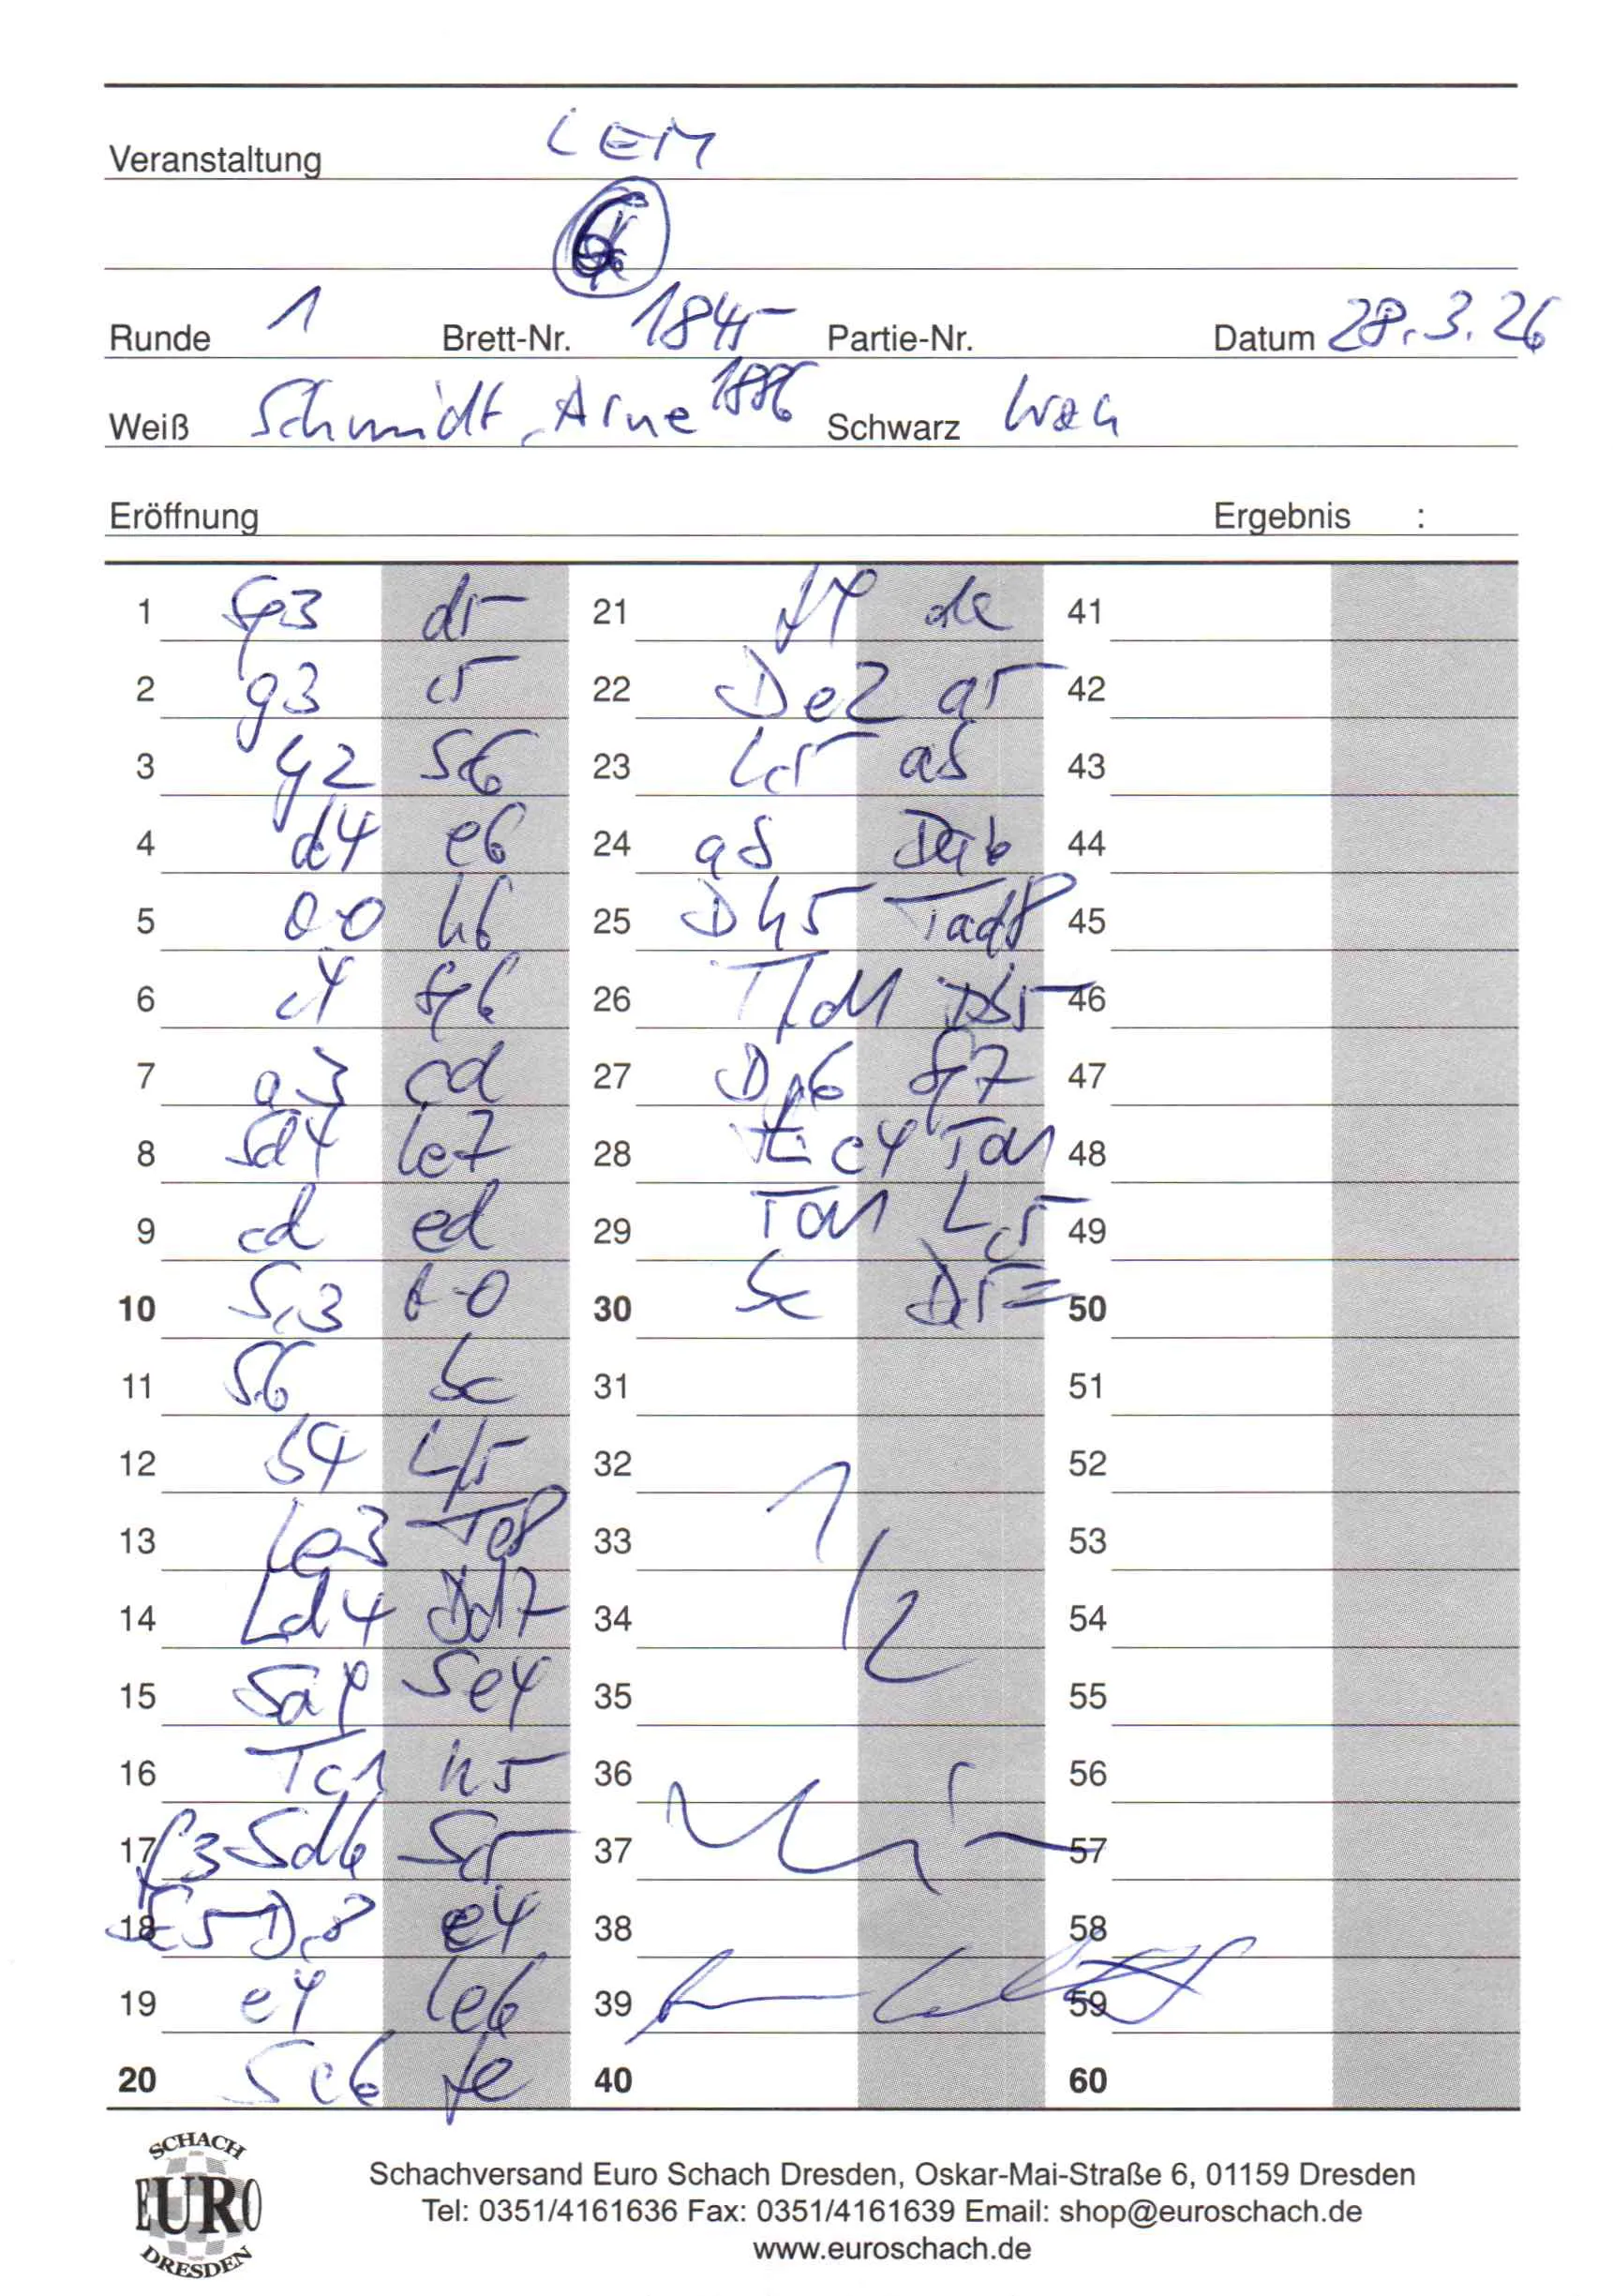 Veranstaltung LEM
6
Runde 1 Brett-Nr. 1845 Partie-Nr. Datum 28.3.26
Weiß Schmidt, Arne 1886 Schwarz
Eröffnung Ergebnis :
1 Sf3 d5 21 f4 de 41
2 g3 c5 22 De2 a5 42
3 g2 Sc6 23 Lc5 ab 43
4 d4 e6 24 ab Db6 44
5 0-0 h6 25 Dh5 Tad8 45
6 c4 Sf6 26 Tfd1 Db5 46
7 a3 cd 27 Dg6 Sf7 47
8 Sd4 Le7 28 c4 Td1 48
9 cd ed 29 Td1 Lc5 49
10 Sc3 0-0 30 bc Df5= 50
11 Sc6 bc 31 51
12 b4 Lf5 32 52
13 Le3 Te8 33 53
14 Ld4 Dd7 34 54
15 Sa4 Se4 35 55
16 Tc1 h5 36 56
17 f3 Sd6 37 57
18 38 58
19 e4 Le6 39 59
20 Sc6 fe 40 60
1/2
SCHACH
EURO
DRESDEN
Schachversand Euro Schach Dresden, Oskar-Mai-Straße 6, 01159 Dresden
Tel: 0351/4161636 Fax: 0351/4161639 Email: shop@euroschach.de
www.euroschach.de